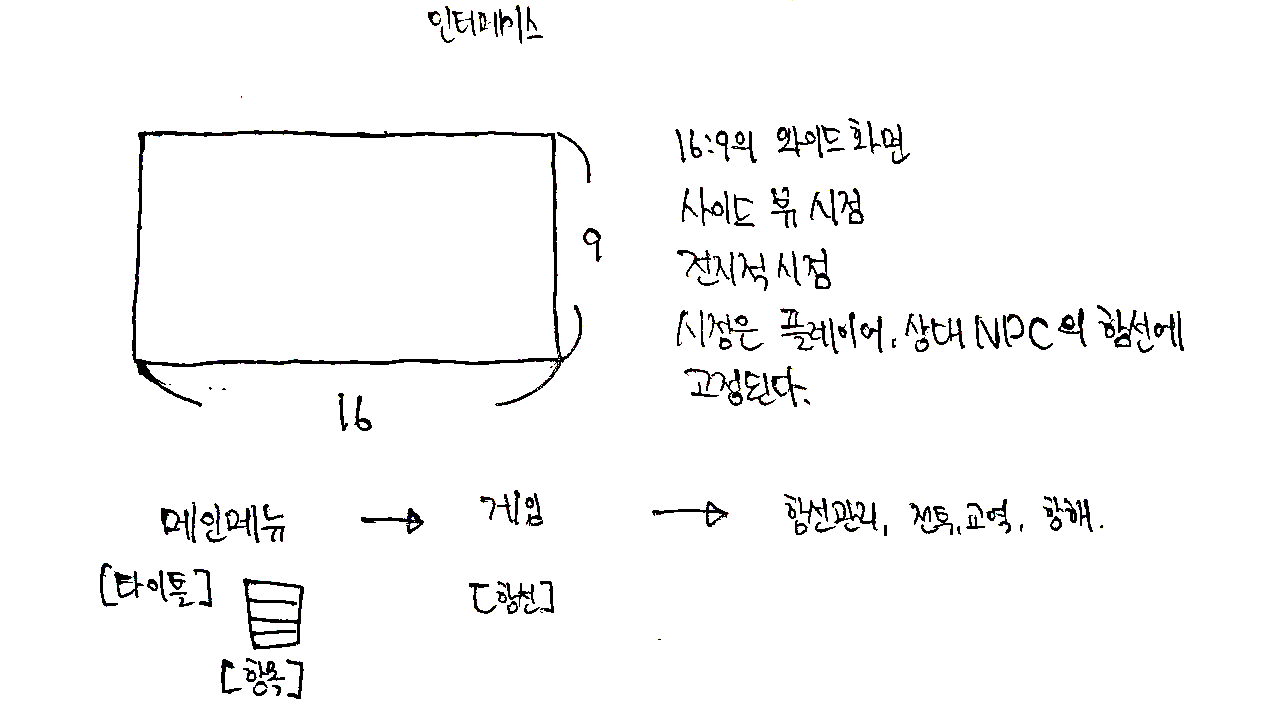 인터페이스
16:9의 와이드 화면
사이드 뷰 시점
전지적 시점
시점은 플레이어, 상대 NPC의 함선에
고정된다.
9
16
메인메뉴 → 게임 → 함선관리, 전투, 교역, 항해.
[타이틀]
[함선]
[항목]